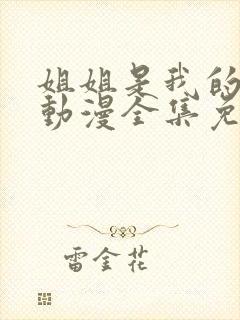 姐姐是我的
動漫全集免
雷金花